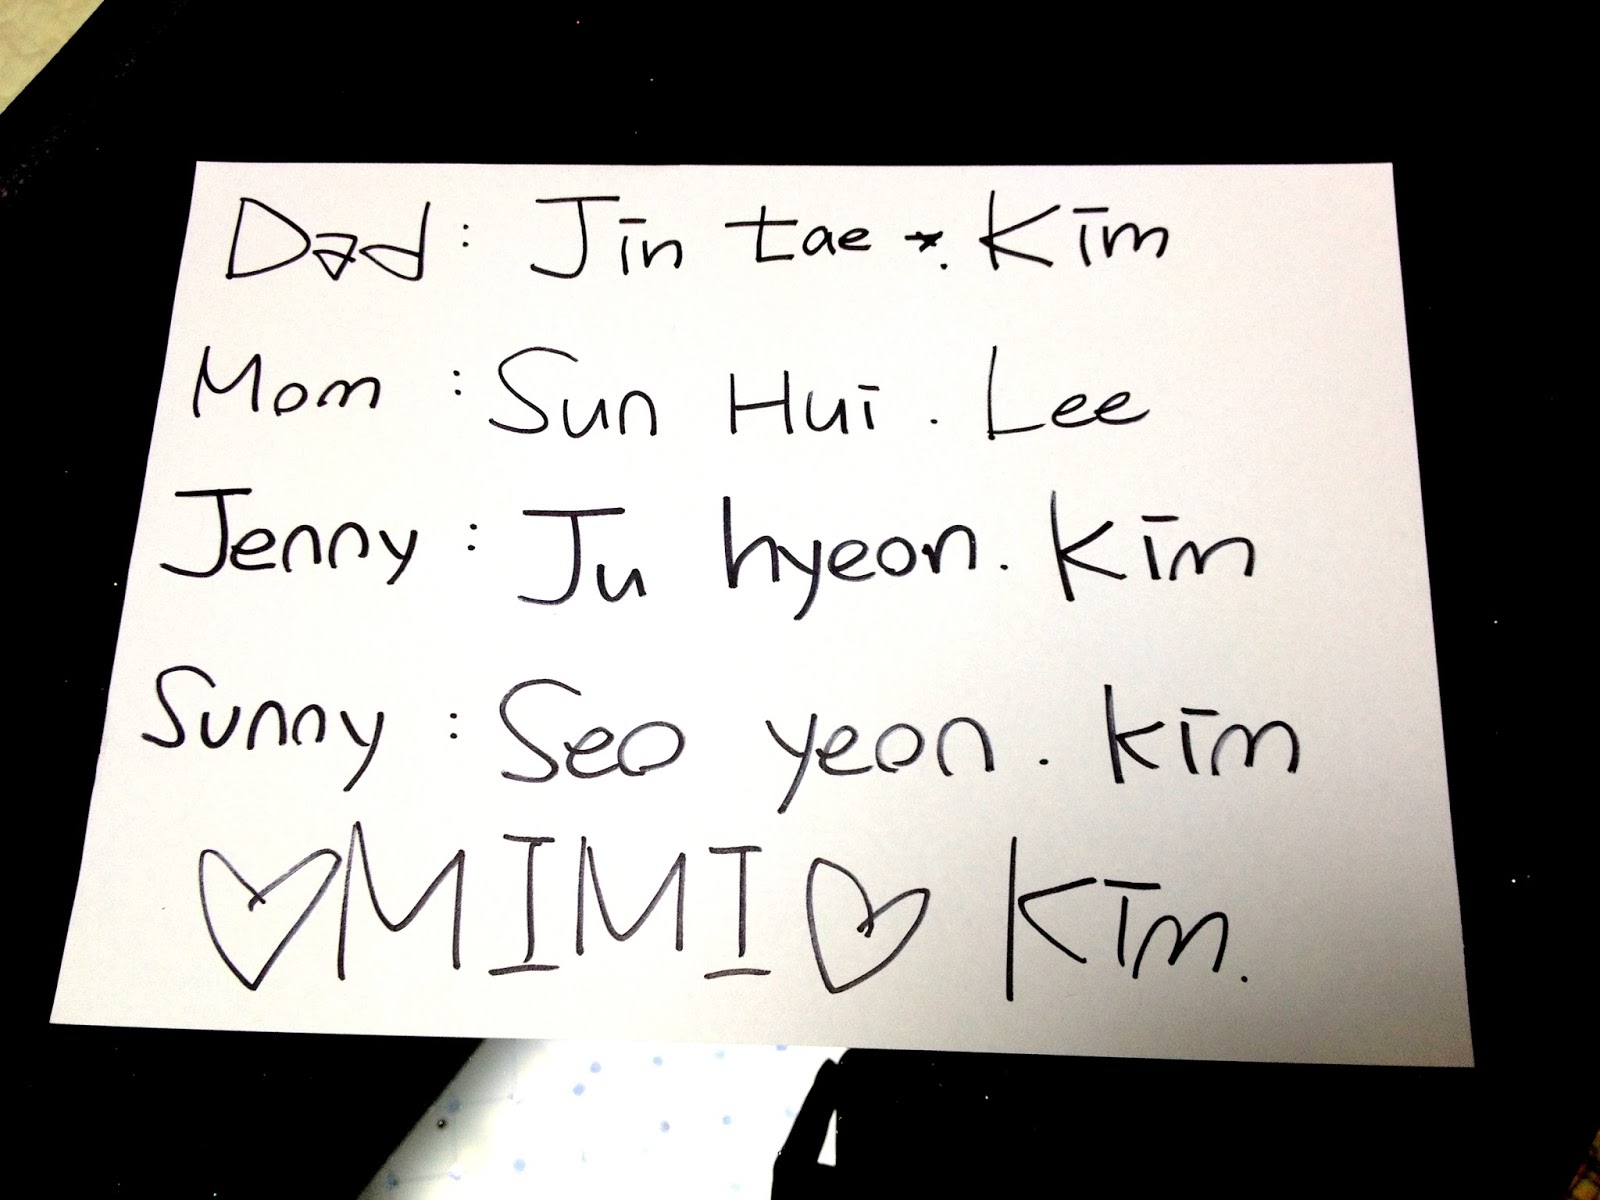 Dad : Jin tae . Kim
Mom : Sun Hui . Lee
Jenny : Ju hyeon . Kim
Sunny : Seo yeon . Kim
♡MIMI♡ Kim.